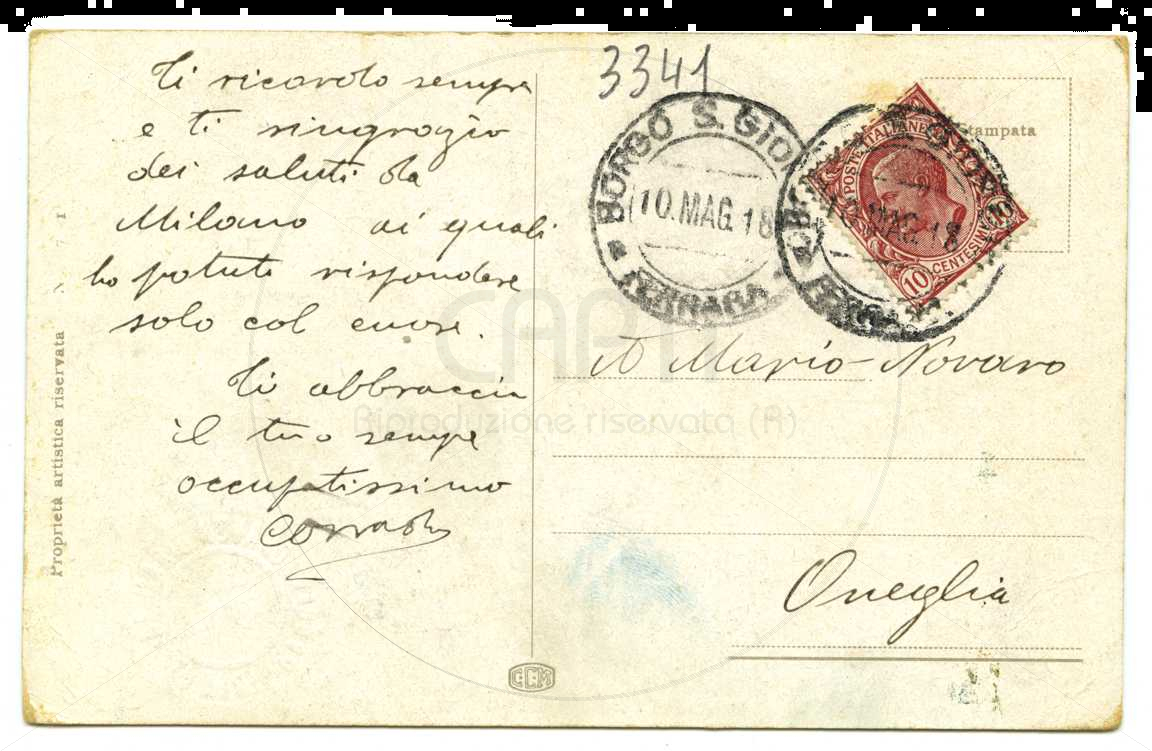 Ti ricordo sempre
e ti ringrazio
dei saluti da
Milano ai quali
ho potuto rispondere
solo col cuore.
Ti abbraccia
il tuo sempre
occupatissimo
Corrado
Proprietà artistica riservata
3341
BORGO S. GIO
10.MAG.18
FERRARA
Stampata
POSTE ITALIANE
10
CENTESIMI
10
MAG. 18
A Mario Novaro
Oneglia
CCM
Riproduzione riservata (R)